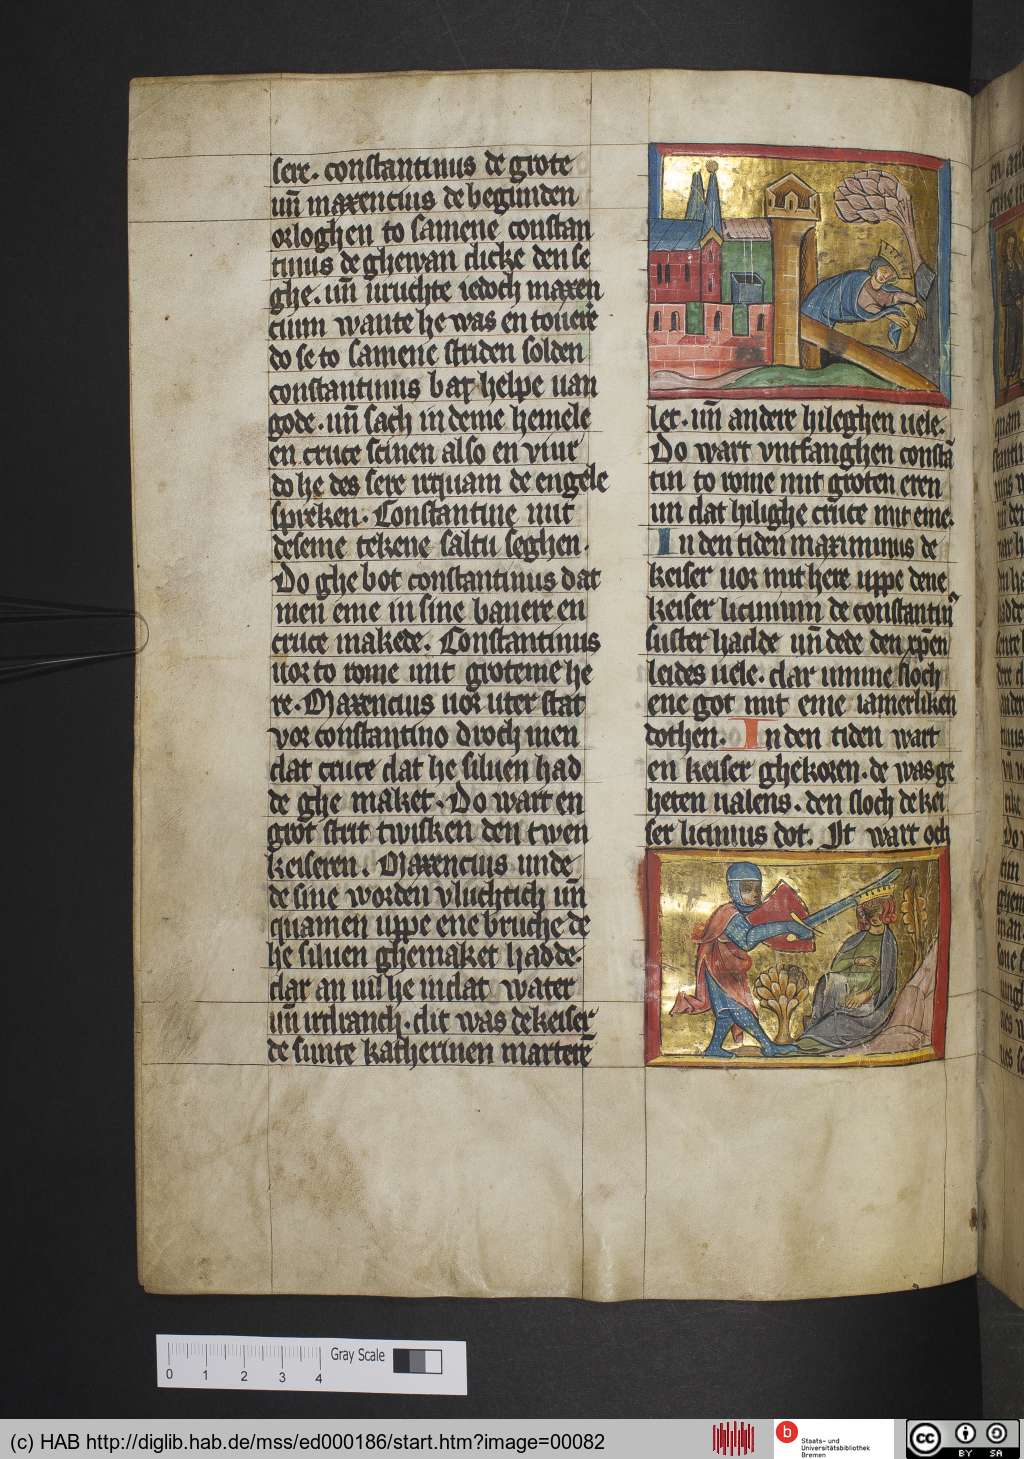 sere. constantinus de grote
un̄ maxencius de begunden
orloghen to samene constan
tinus de ghewan dicke den se
ghe. un̄ uruchte iedoch maxen
cium wante he was en touere
do se to samene striden solden
constantinus bat helpe uan
gode. un̄ sach in deme hemele
en cruce scinen also en viur
do he des sere irquam de engele
spreken. Constantine mit
deseme tekene saltu seghen.
Do ghe bot constantinus dat
men eme in sine banere en
cruce makede. Constantinus
uor to rome mit groteme he
re. Maxencius uor uter stat
vor constantino droch men
dat cruce dat he siluen had
de ghe maket. Do wart en
grot strit twisken den twen
keiseren. Maxencius unde
de sine worden vluchtich un̄
quamen uppe ene brucke de
he siluen ghemaket hadde.
dar an uil he in dat water
un̄ irdranch. dit was de keiser
de sunte katherinen marterē
let. un̄ andere hileghen uele.
Do wart vntfanghen constā
tin to rome mit groten eren
un dat hilighe cruce mit eme.
In den tiden maximinus de
keiser uor mit here uppe dene
keiser licinium de constantin᷒
suster hadde un̄ dede den xp̄en
leides uele. dar umme sloch
ene got mit eme iamerliken
dothen. In den tiden wart
en keiser ghekoren. de was ge
heten ualens. den sloch de kei
ser licinius dot. It wart och
0 1 2 3 4
Gray Scale
(c) HAB http://diglib.hab.de/mss/ed000186/start.htm?image=00082
b
Staats- und
Universitätsbibliothek
Bremen
cc BY SA